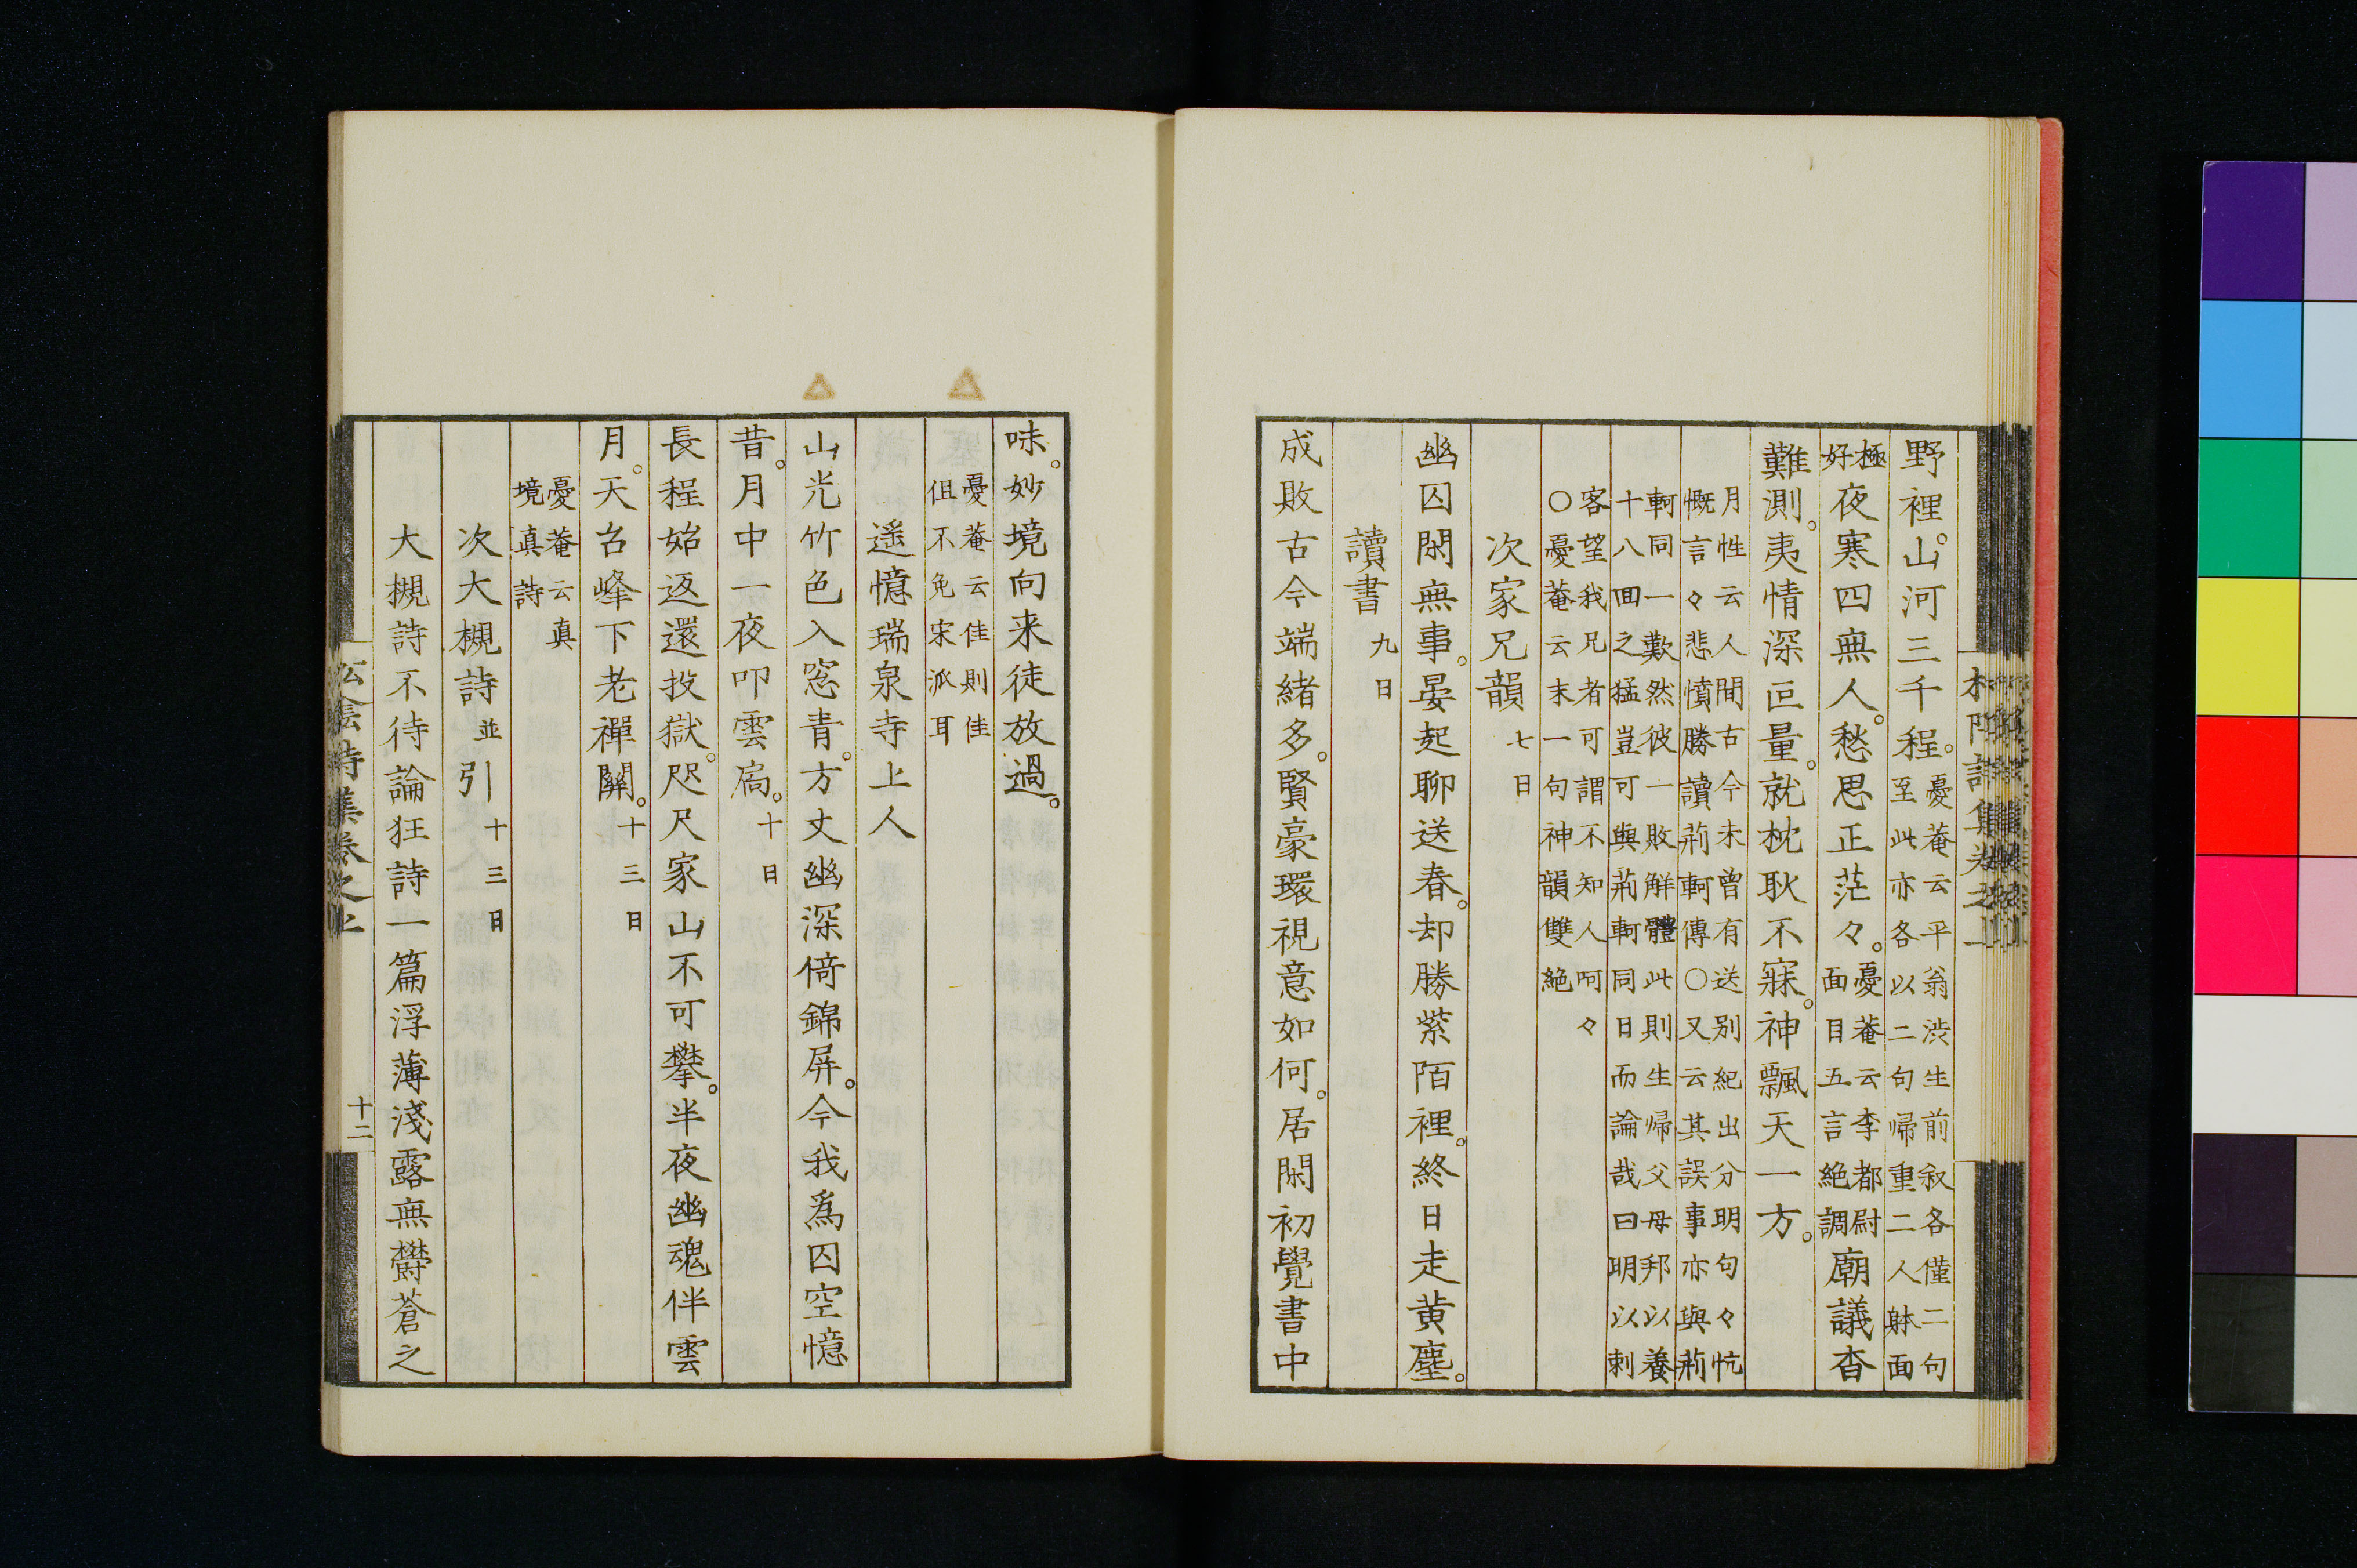 野裡。山河三千程。憂菴云平翁渋生前叙各僅二句
至此亦各以二句帰重二人躰面
極
好夜寒四無人。愁思正茫々。憂菴云李都尉
面目五言絶調廟議杳
難測。夷情深叵量。就枕耿不寐。神飄天一方。
月性云人間古今未曾有送別紀出分明句々忼
慨言々悲憤勝讀荊軻傳○又云其誤事亦與荊
軻同一歎然彼一敗觧體此則生帰父母邦以養
十八囬之猛豈可與荊軻同日而論哉曰明以刺
客望我兄者可謂不知人呵々
○憂菴云末一句神韻雙絶
次家兄韻 七日
幽囚閑無事。晏起聊送春。却勝紫陌裡。終日走黄塵。
讀書 九日
成敗古今端緒多。賢豪環視意如何。居閑初覺書中
味。妙境向来徒放過。
憂菴云佳則佳
伹不免宋派耳
遥憶瑞泉寺上人
山光竹色入窓青。方丈幽深倚錦屏。今我爲囚空憶
昔。月中一夜叩雲扃。十日
長程始返還投獄。咫尺家山不可攀。半夜幽魂伴雲
月。天台峰下老禪關。十三日
憂菴云真
境真詩
次大槻詩並引 十三日
大槻詩不待論狂詩一篇浮薄淺露無欝蒼之
松陰詩集巻之上
十二